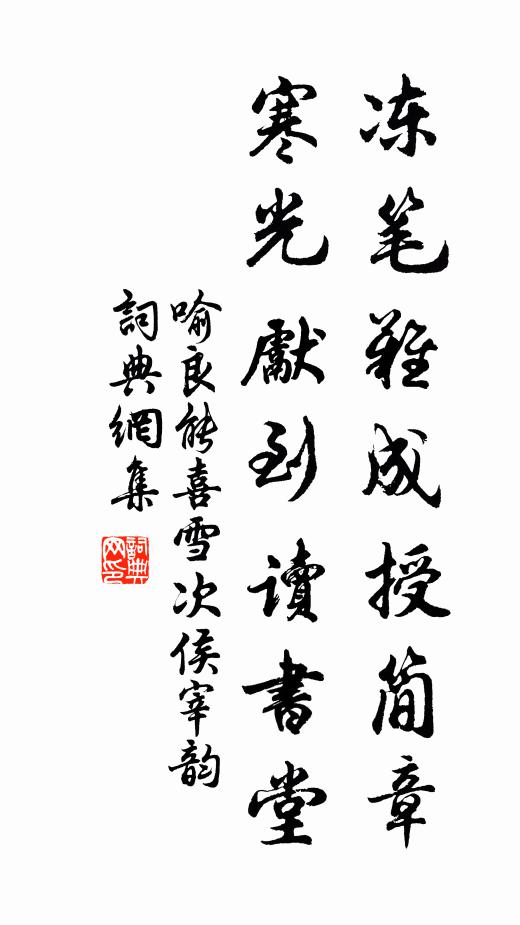 冻笔难成授简章
寒光献到讀書堂
喻良能喜雪次侯宰韵
詞典網集
詞典
网印